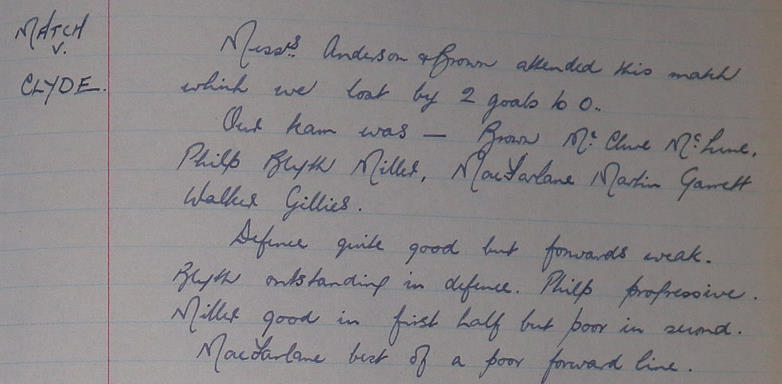 MATCH
v.
CLYDE.
Messrs. Anderson & Brown attended this match
which we lost by 2 goals to 0.
Our team was — Brown McClure McLune,
Philp Blyth Miller, MacFarlane Martin Garrett
Walker Gillies.
Defence quite good but forwards weak.
Blyth outstanding in defence. Philp progressive.
Miller good in first half but poor in second.
MacFarlane best of a poor forward line.